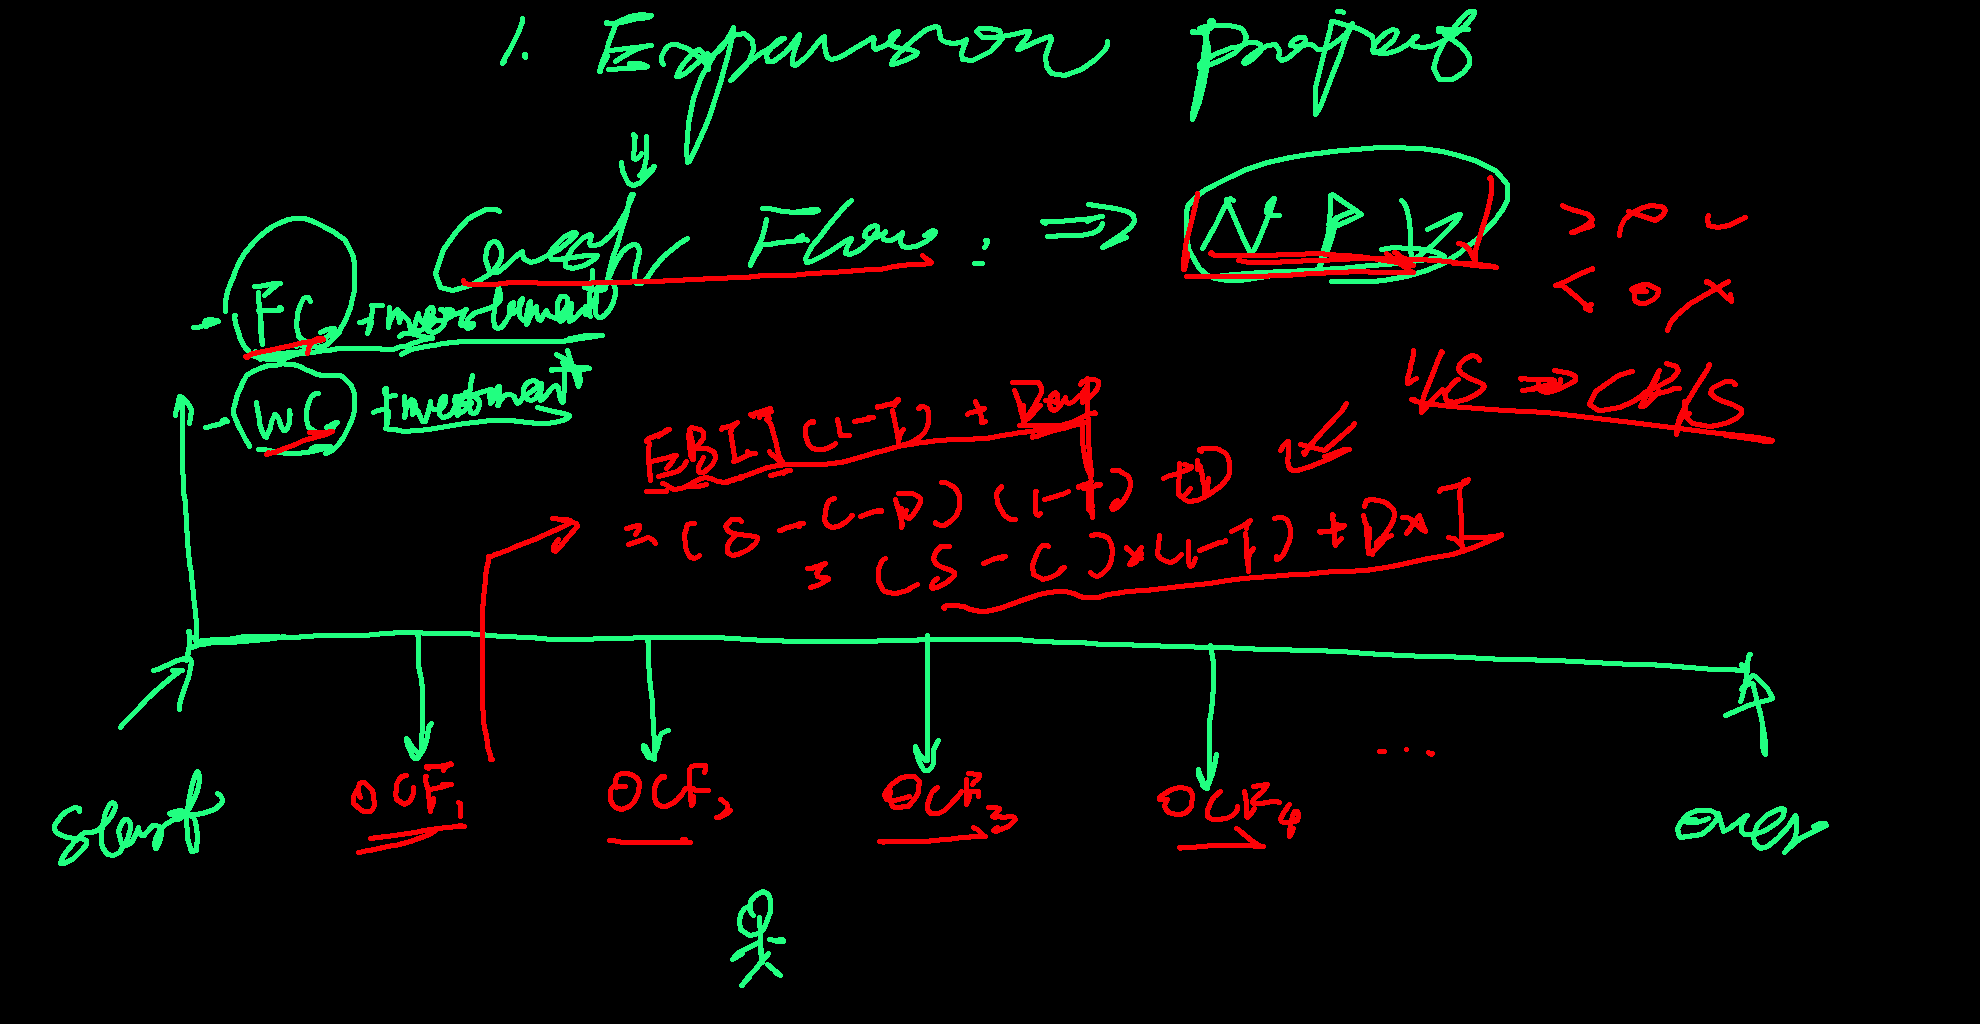 1. Expansion project
Cash Flow: ⇒ NPV > 0 ✓
< 0 ×
- FC investment
- WC investment
I/S ⇒ CF/S
EBIT (1-T) + Dep
= (S - C - D) (1-T) + D
= (S - C) × (1-T) + D × T
OCF1 OCF2 OCF3 OCF4 ...
start over